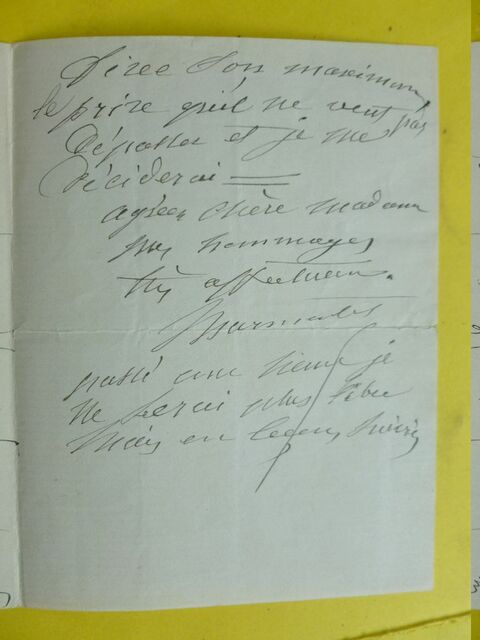 dire son maximum,
le prix qu'il ne veut pas
dépasser et je me
déciderai
agréez chère madame
mes hommages
très affectueux.
Marmontel
passé une heure je
ne serai plus libre
mais en leçons